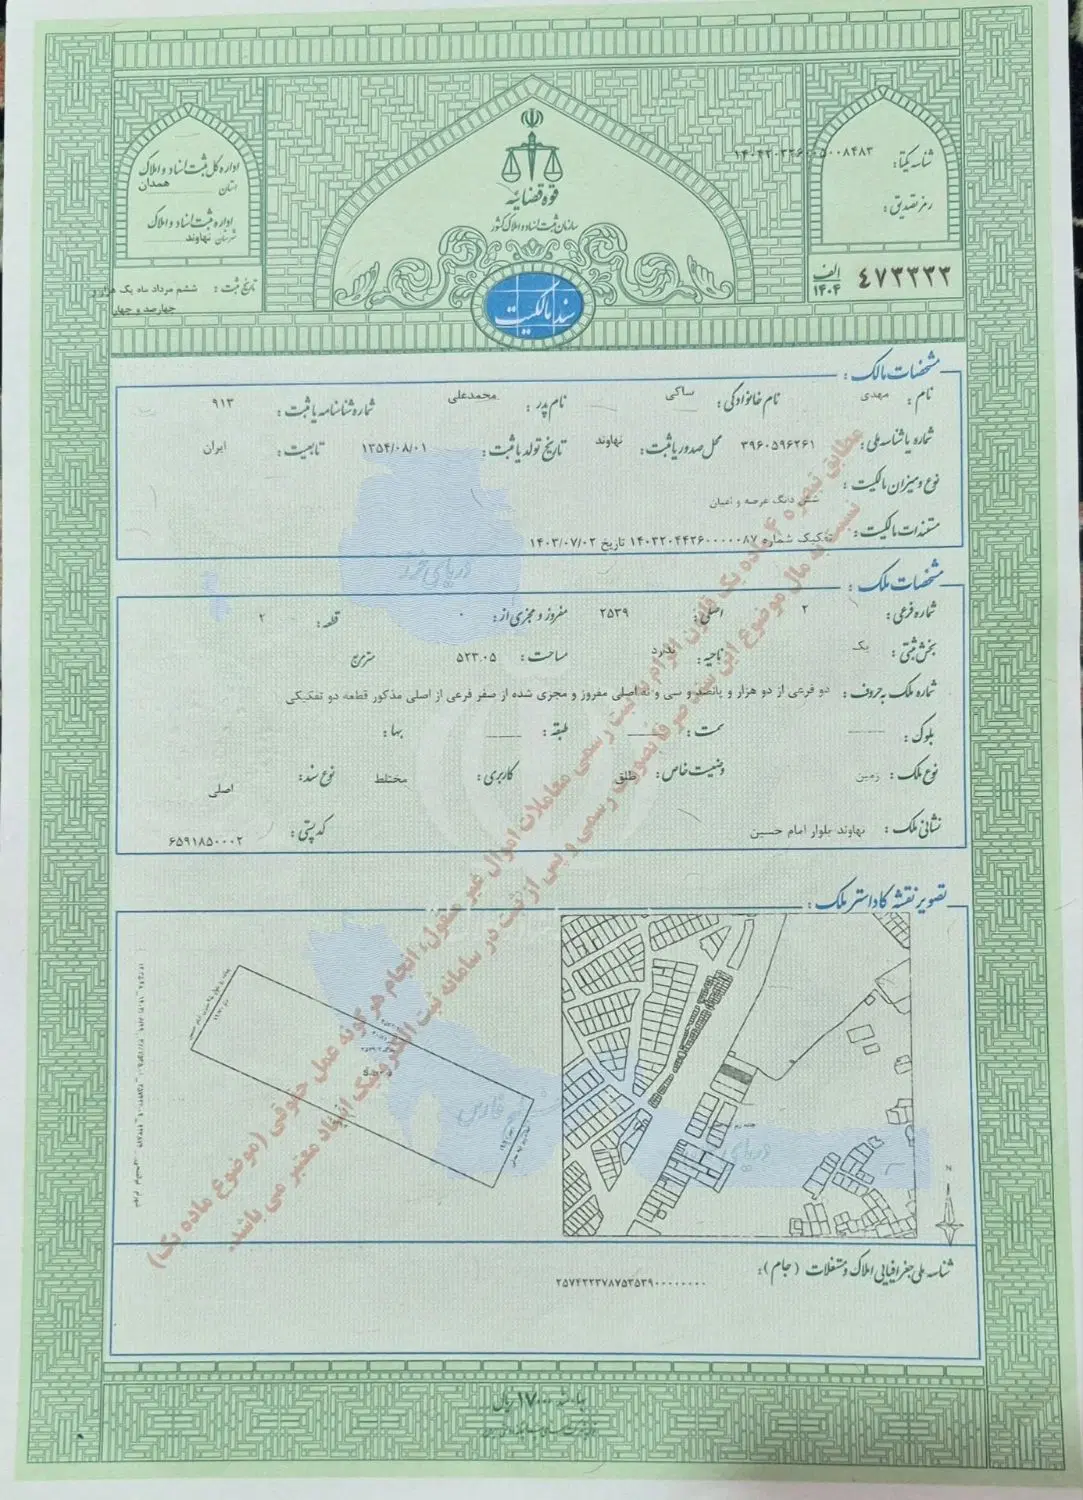 قوه قضائیه
سازمان ثبت اسناد و املاک کشور
سند مالکیت
اداره کل ثبت اسناد و املاک
استان همدان
اداره ثبت اسناد و املاک
شهرستان نهاوند
تاریخ ثبت : ششم مرداد ماه یک هزار و
چهارصد و چهار
شناسه یکتا:
رمز تصدیق :
الف ۱۴۰۴ ۴۷۳۳۳۳
مشخصات مالک :
نام : مهدی نام خانوادگی : ساکی نام پدر : محمدعلی شماره شناسنامه یا ثبت : ۹۱۳
شماره یا شناسه ملی : ۳۹۶۰۵۹۶۲۶۱ محل صدور یا ثبت : نهاوند تاریخ تولد یا ثبت : ۱۳۵۴/۰۸/۰۱ تابعیت : ایران
نوع و میزان مالکیت : شش دانگ عرصه و اعیان
مستندات مالکیت : تفکیک شماره ۱۴۰۳۲۰۴۴۲۶۰۰۰۰۰۸۷ تاریخ ۱۴۰۳/۰۷/۰۲
مشخصات ملک :
شماره فرعی : ۲ اصلی : ۲۵۳۹ مفروز و مجزی از : ۰ قطعه : ۲
بخش ثبتی : یک ناحیه : ندارد مساحت : ۵۲۳.۰۵ مترمربع
شماره ملک به حروف : دو فرعی از دو هزار و پانصد و سی و نه اصلی مفروز و مجزی شده از صفر فرعی از اصلی مذکور قطعه دو تفکیکی
بلوک : سمت : طبقه : بها :
نوع ملک : زمین وضعیت خاص : طلق کاربری : مختلط نوع سند : اصلی
نشانی ملک : نهاوند بلوار امام حسین کد پستی : ۶۵۹۱۸۵۰۰۰۲
مطابق تبصره ۴ ماده یک قانون الزام به ثبت رسمی معاملات اموال غیر منقول، انجام هرگونه عمل حقوقی (موضوع ماده یک)
نسبت به مال موضوع این سند صرفا بصورت رسمی و پس از ثبت در سامانه ثبت الکترونیک اسناد معتبر می باشد.
تصویر نقشه کاداستر ملک :
فارس
N
شناسه ملی جغرافیایی املاک و مستغلات (جام) :
بها: ۱۷۰۰۰۰ ریال